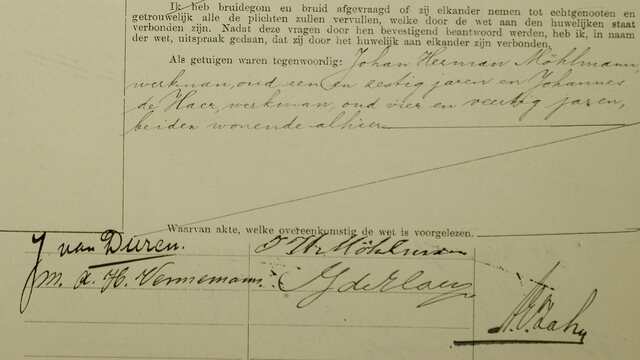 Ik heb bruidegom en bruid afgevraagd of zij elkander nemen tot echtgenooten en
getrouwelijk alle de plichten zullen vervullen, welke door de wet aan den huwelijken staat
verbonden zijn. Nadat deze vragen door hen bevestigend beantwoord werden, heb ik, in naam
der wet, uitspraak gedaan, dat zij door het huwelijk aan elkander zijn verbonden.
Als getuigen waren tegenwoordig: Johan Herman Möhlmann
werkman, oud een en zestig jaren en Johannes
de Haer, werkman, oud vier en veertig jaren,
beiden wonende alhier
Waarvan akte, welke overeenkomstig de wet is voorgelezen.
J van Duren. J Hr Möhlmann
M. A. H. Vennemann